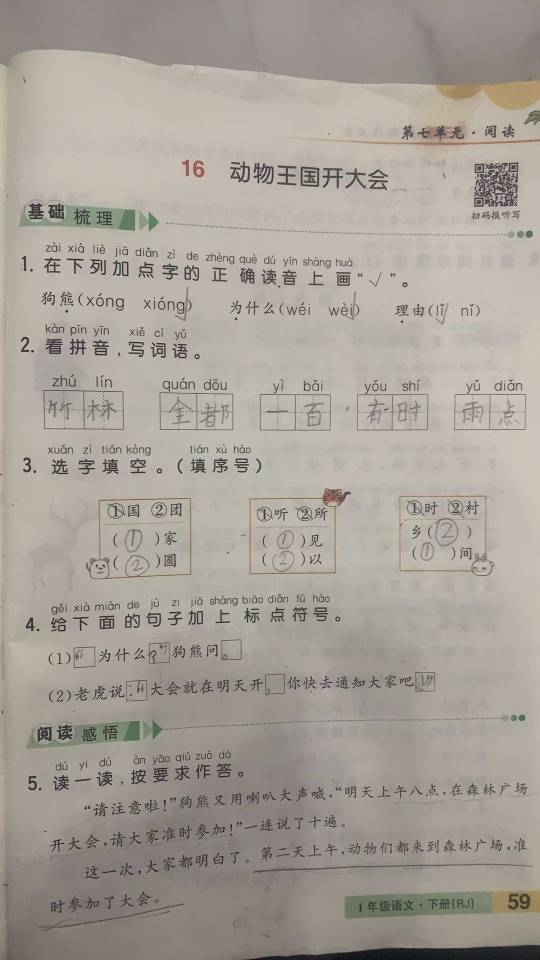 第七单元·阅读
16 动物王国开大会
扫码报听写
基础梳理
zài xià liè jiā diǎn zì de zhèng què dú yīn shàng huà
1. 在下列加点字的正确读音上画“√”。
狗熊(xóng xióng√) 为什么(wéi wèi√) 理由(lǐ√ nǐ)
kàn pīn yīn xiě cí yǔ
2. 看拼音,写词语。
zhú lín quán dōu yì bǎi yǒu shí yǔ diǎn
竹林 全都 一百 有时 雨点
xuǎn zì tián kòng tián xù hào
3. 选字填空。(填序号)
①国 ②团 ①听 ②所 ①时 ②村
(①)家 (①)见 乡(②)
(②)圆 (②)以 (①)间
gěi xià miàn de jù zi jiā shàng biāo diǎn fú hào
4. 给下面的句子加上标点符号。
(1)“为什么?”狗熊问。
(2)老虎说:“大会就在明天开,你快去通知大家吧!”
阅读感悟
dú yi dú àn yāo qiú zuò dá
5. 读一读,按要求作答。
“请注意啦!”狗熊又用喇叭大声喊,“明天上午八点,在森林广场
开大会,请大家准时参加!”一连说了十遍。
这一次,大家都明白了。第二天上午,动物们都来到森林广场,准
时参加了大会。
1年级语文·下册(RJ) 59